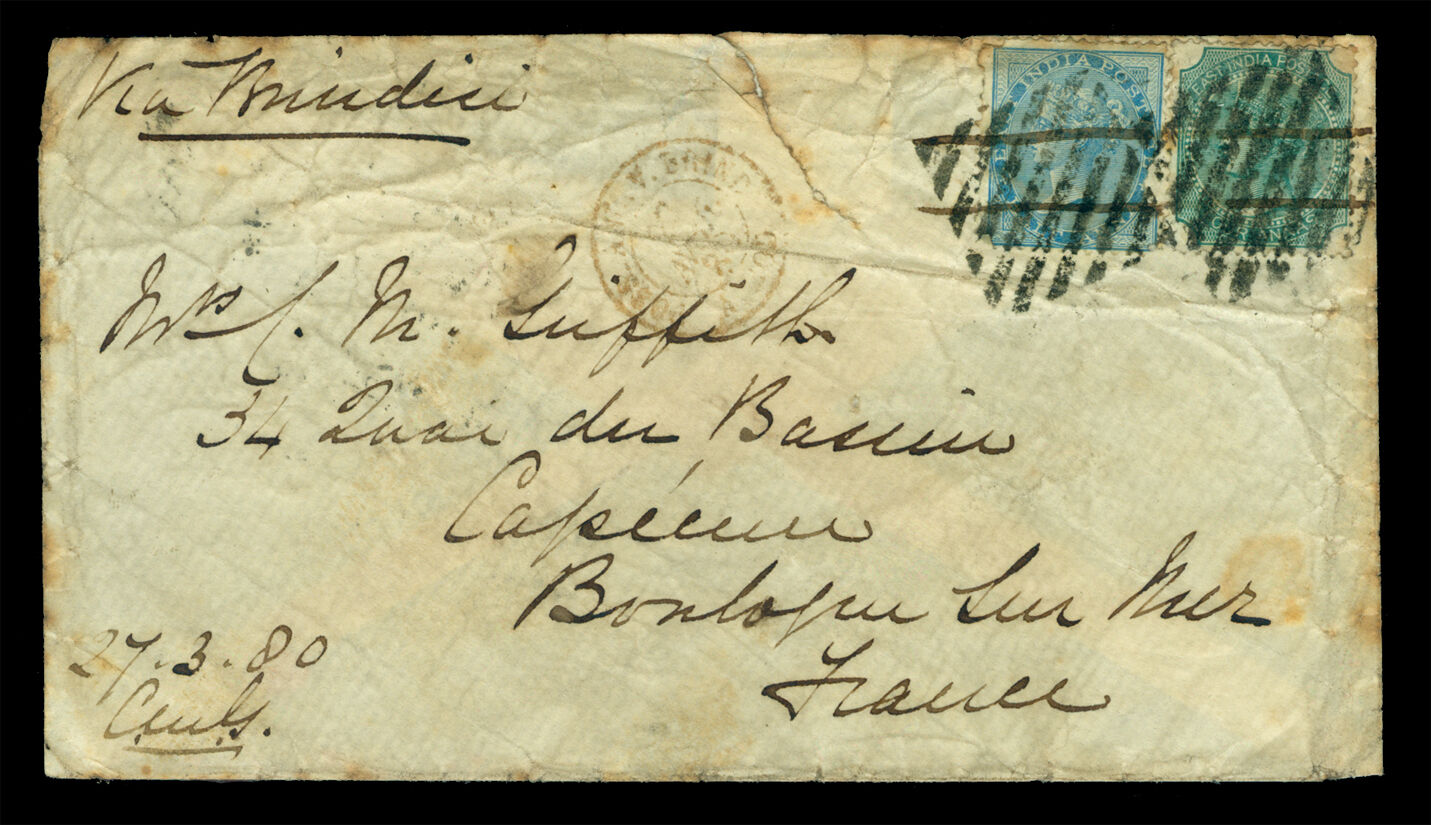 Via Brindisi
INDIA POST
EAST INDIA POST
Mrs C. M. Griffith
34 Quai du Bassin
Capécure
Boulogne Sur Mer
France
27.3.80